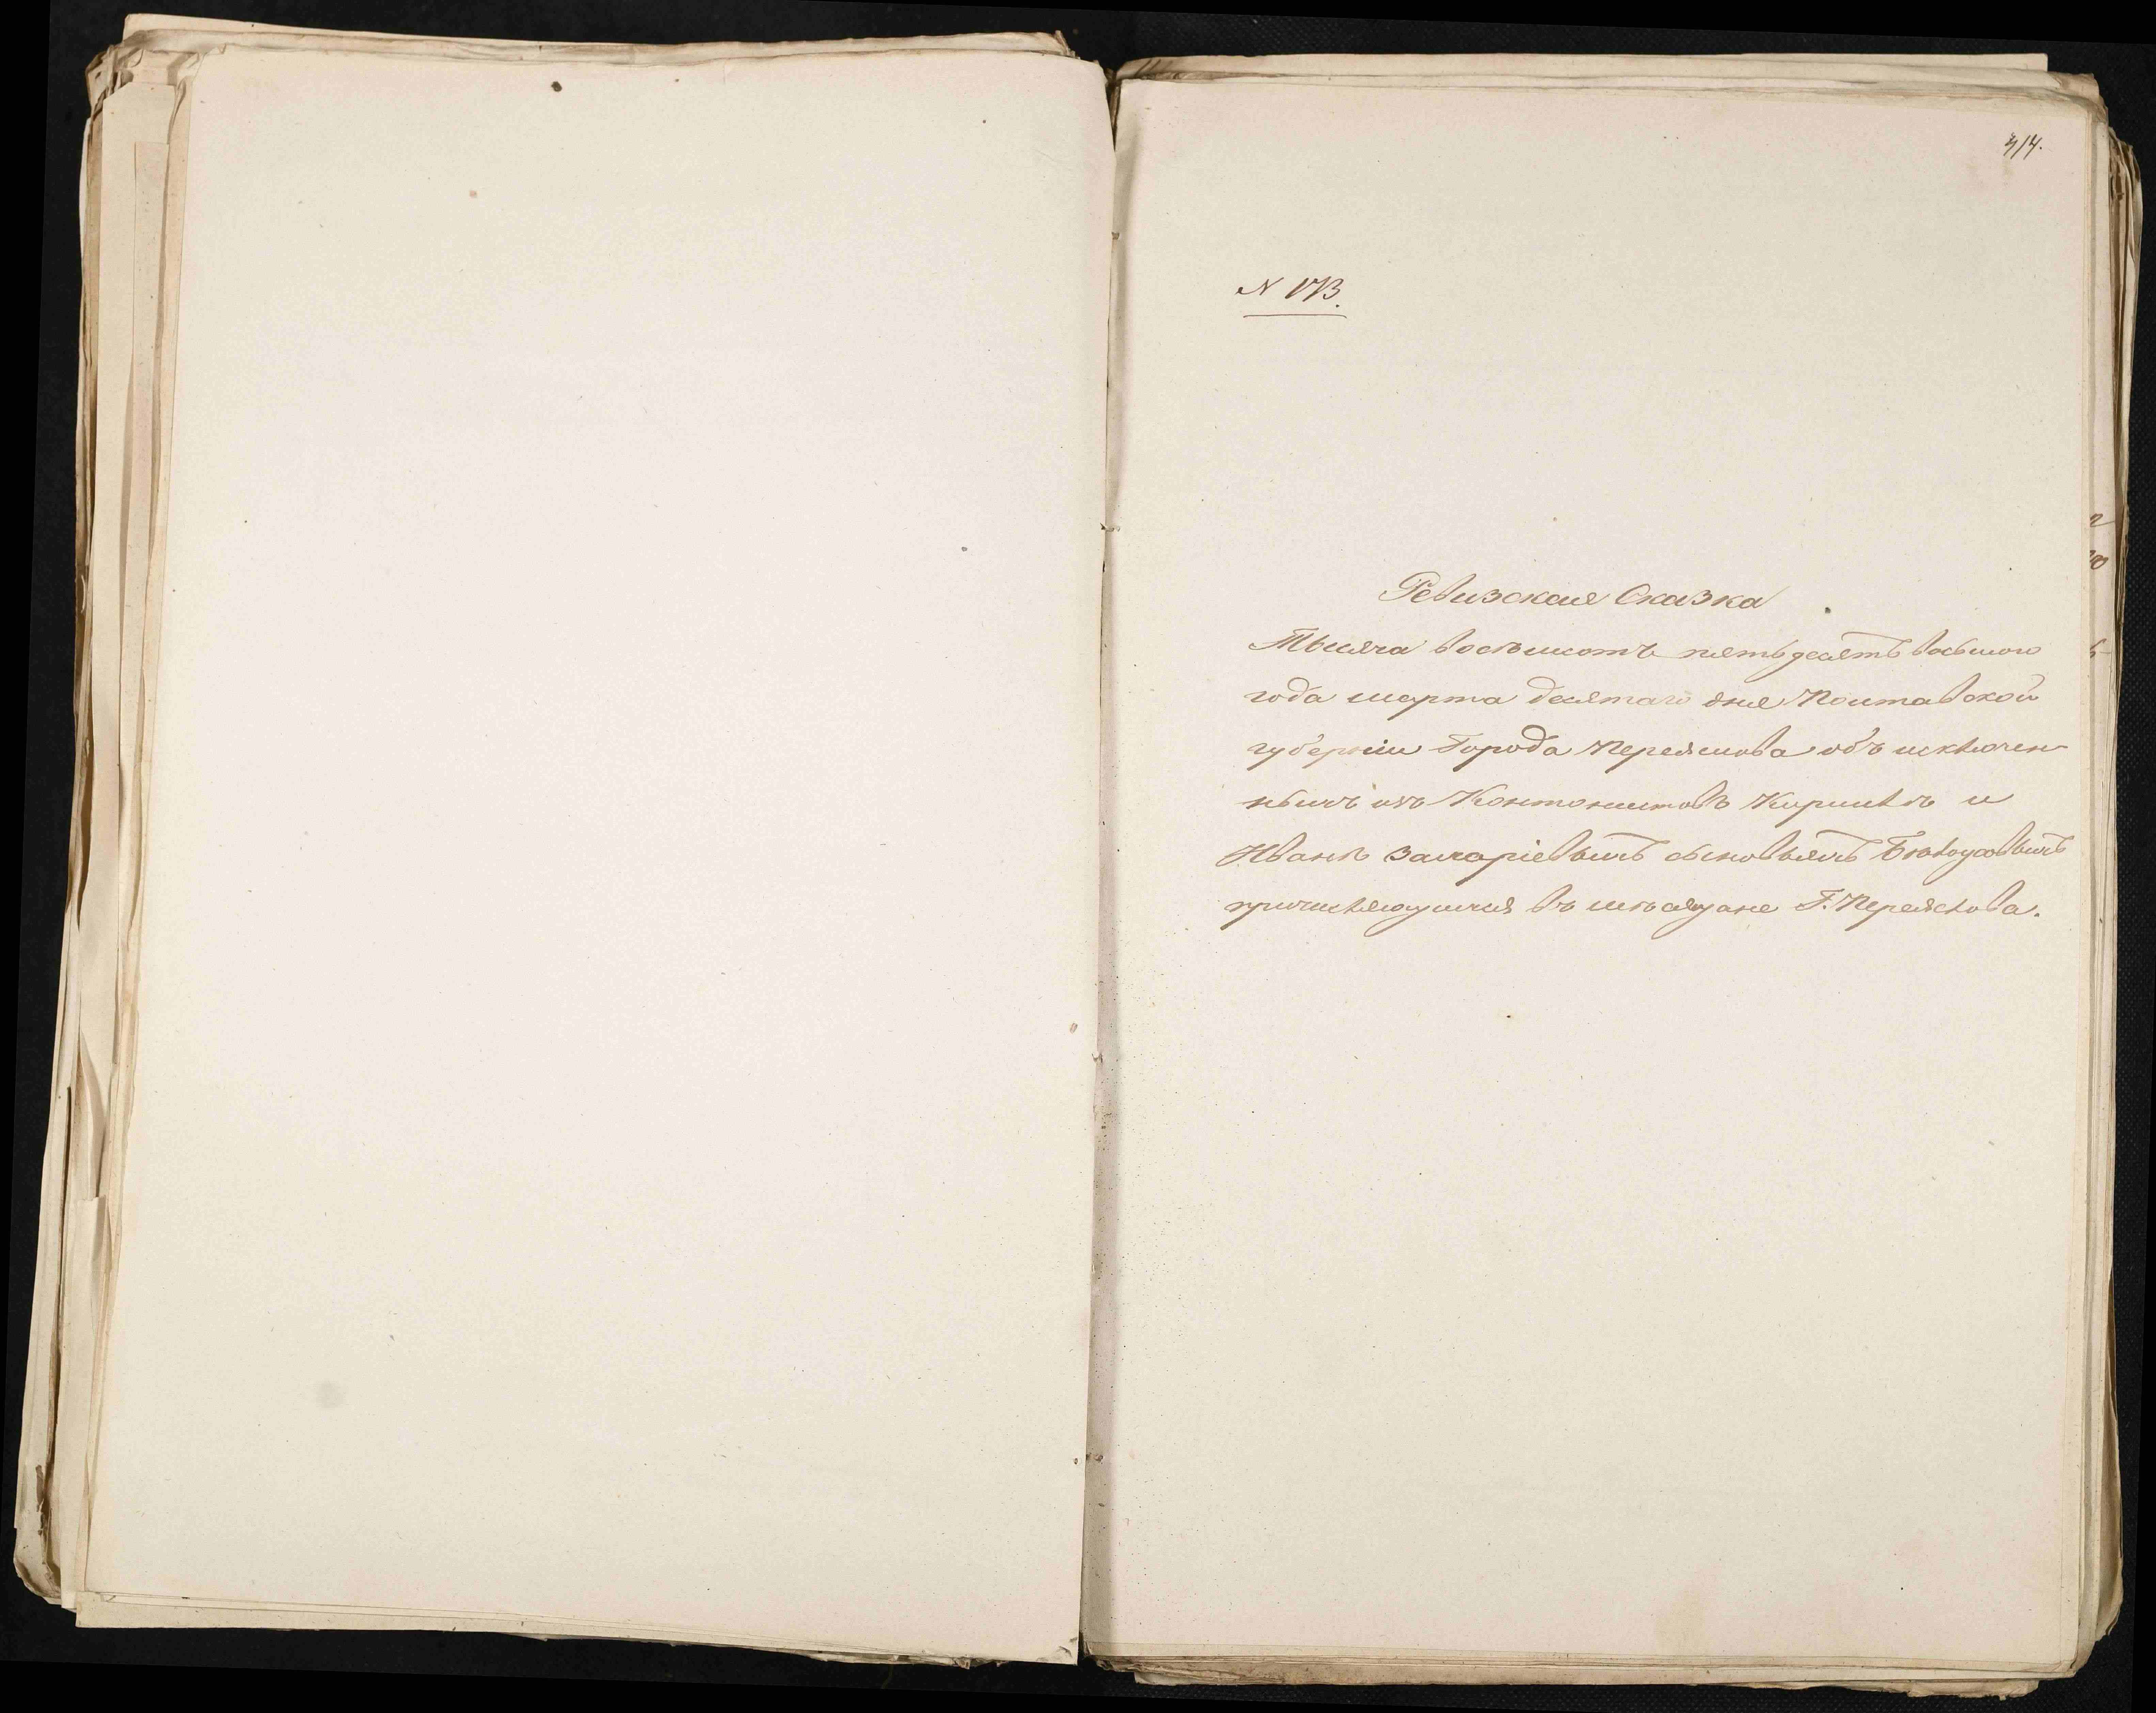 414.
N 173.
Ревизская Сказка
Тысяча восѣмсотъ пятьдесятъ восьмого
года марта десятаго дня Полтавской
губерніи Города Переяслова объ исключен-
ныхъ изъ Контонистовъ Кирилѣ и
Иванѣ Захаріевыхъ сыновьяхъ Бѣлоусовыхъ
причисляющихся въ мѣщане Г. Переяслова.